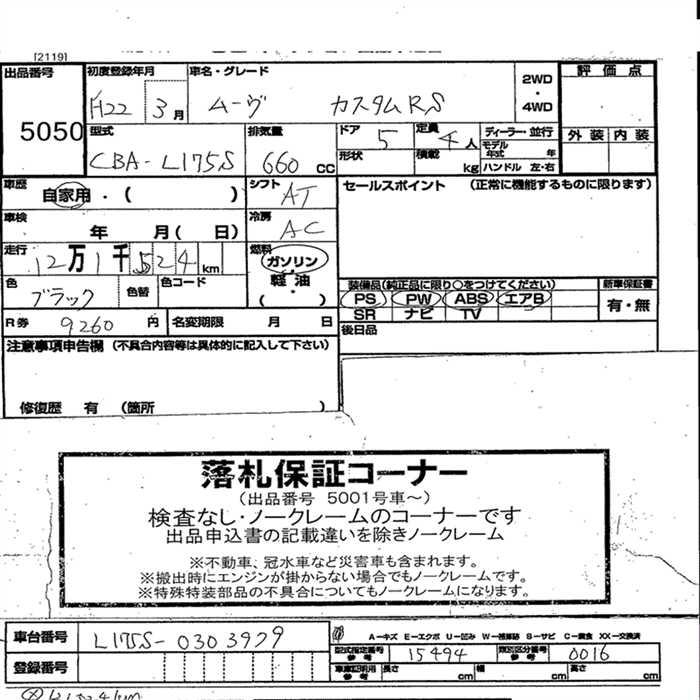 [2119]
出品番号 5050
初度登録年月 H22 3月
車名・グレード ムーヴ カスタムRS
2WD・4WD
評価点
外装 内装
型式 CBA-L175S
排気量 660 cc
ドア 5
定員 4人
ディーラー・並行
モデル年式 年
形状
積載 kg
ハンドル 左・右
車歴 自家用・( )
シフト AT
セールスポイント (正常に機能するものに限ります)
車検 年 月( 日)
冷房 AC
走行 12万1千524km
燃料 ガソリン 軽油 ( ・ )
色 ブラック
色替
色コード
装備品(純正品に限り○をつけてください)
新車保証書 有・無
PS PW ABS エアB
SR ナビ TV
R券 9260円
名変期限 月 日
後日品
注意事項申告欄 (不具合内容等は具体的に記入して下さい)
修復歴 有 (箇所 )
落札保証コーナー
(出品番号 5001号車~)
検査なし・ノークレームのコーナーです
出品申込書の記載違いを除きノークレーム
※不動車、冠水車など災害車も含まれます。
※搬出時にエンジンが掛からない場合でもノークレームです。
※特殊特装部品の不具合についてもノークレームになります。
車台番号 L175S-0303979
A-キズ E-エクボ U-凹み W-補修跡 S-サビ C-腐食 XX-交換済
型式指定番号 参考 15494
類別区分番号 参考 0016
登録番号
車庫証明用 参考 長さ cm 幅 cm 高さ cm